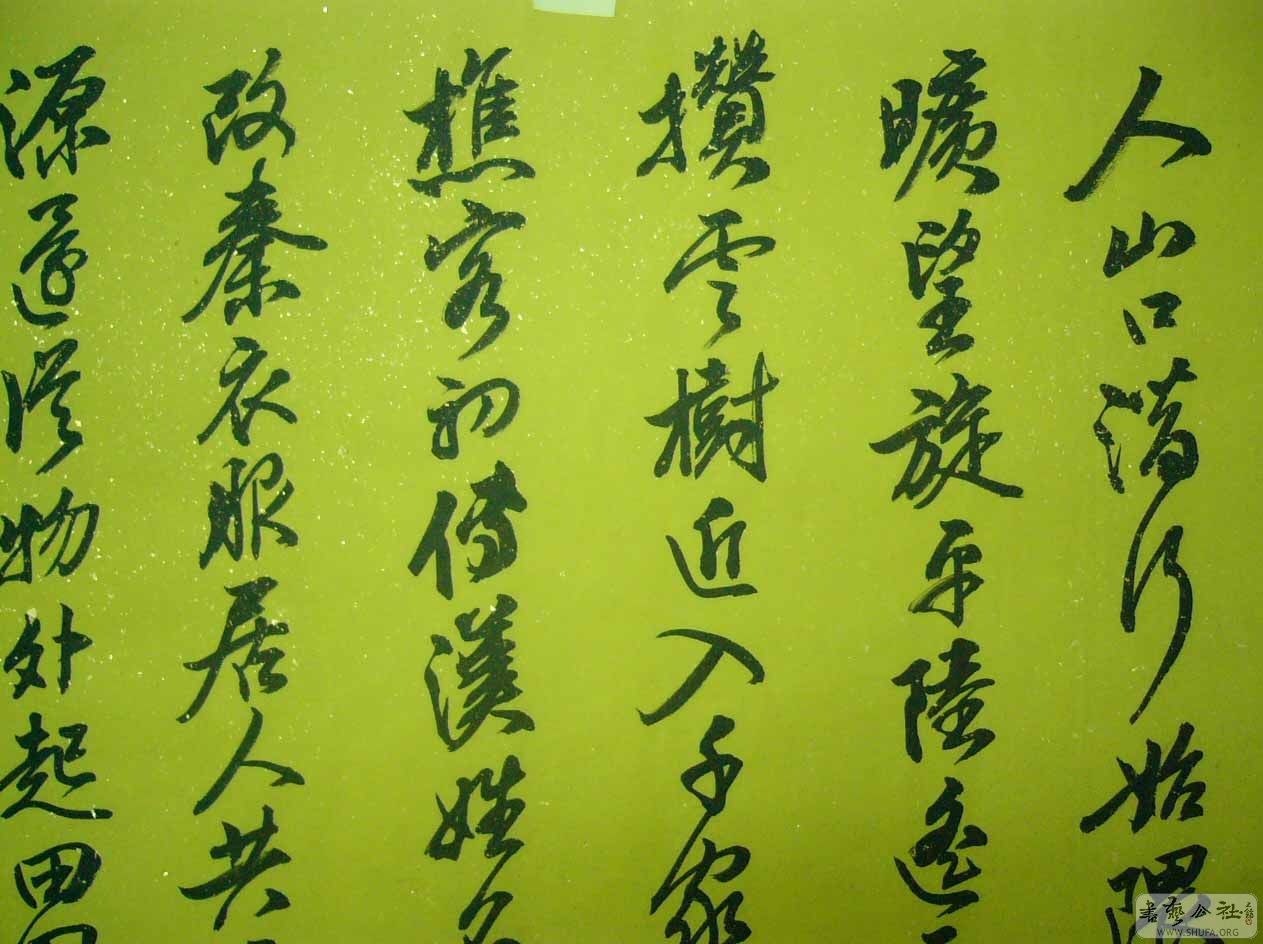 人山口潛行始隈
曠望旋平陸遙
攢雲樹近入千家
樵客初傳漢姓名
改秦衣服居人共
源還從物外起田
書藝公社
WWW.SHUFA.ORG